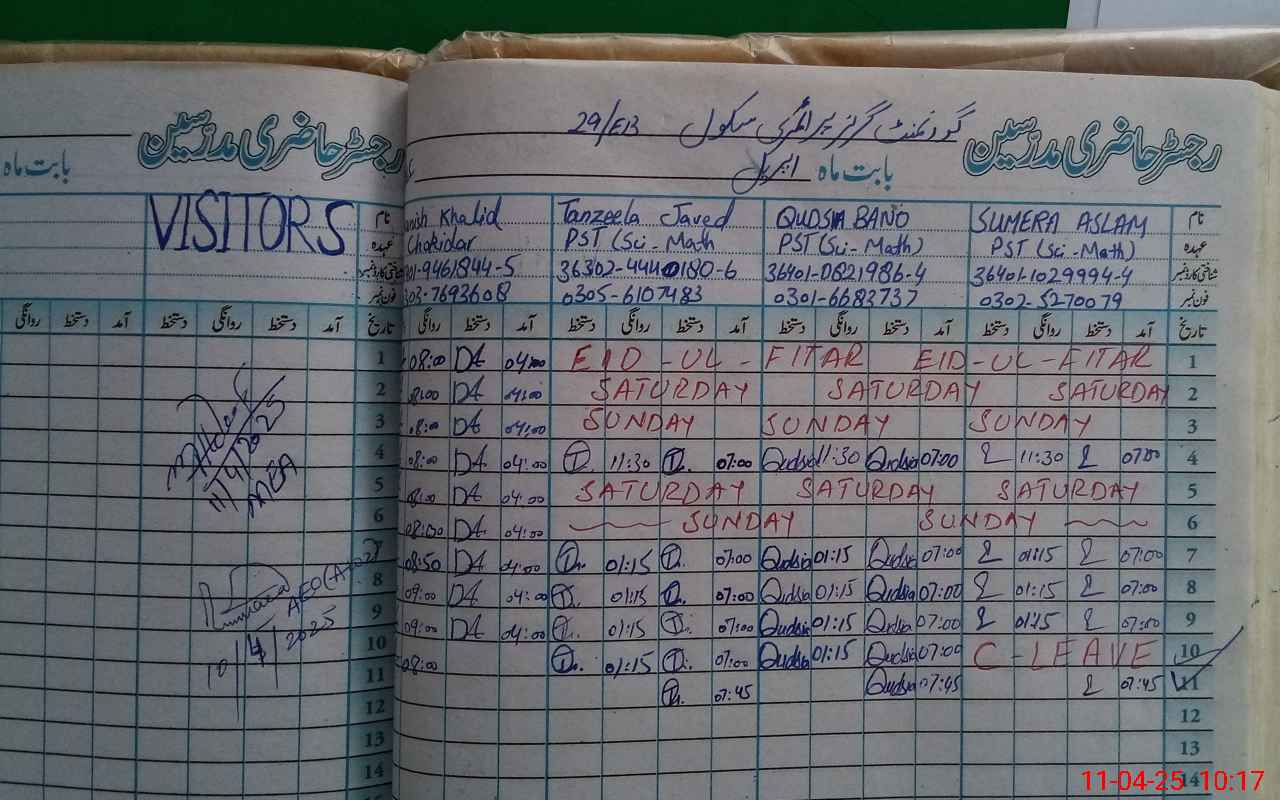 رجسٹر حاضری مدرسین
گورنمنٹ گرلز پرائمری سکول 29/EB
رجسٹر حاضری مدرسین
بابت ماہ
بابت ماہ اپریل
VISITORS
نام
Khalid
Tanzeela Javed
QUDSIA BANO
SUMERA ASLAM
نام
عہدہ
Chokidar
PST (Sci - Math
PST (Sci - Math)
PST (Sci - Math)
عہدہ
شناختی کارڈ نمبر
01-9461844-5
36302-4440180-6
36401-0821986-4
36401-1029994-4
شناختی کارڈ نمبر
فون نمبر
303-7693608
0305-6107483
0301-6683737
0302-5270079
فون نمبر
روانگی دستخط آمد دستخط روانگی دستخط آمد تاریخ
روانگی دستخط آمد دستخط روانگی دستخط آمد دستخط روانگی دستخط آمد دستخط روانگی دستخط آمد تاریخ
1 08:00 DA 04:00 EID - UL - FITAR EID - UL - FITAR 1
2 08:00 DA 04:00 SATURDAY SATURDAY SATURDAY 2
3 08:00 DA 04:00 SUNDAY SUNDAY SUNDAY 3
4 08:00 DA 04:00 T. 11:30 T. 07:00 Qudsia 11:30 Qudsia 07:00 11:30 07:00 4
5 08:00 DA 04:00 SATURDAY SATURDAY SATURDAY 5
6 08:00 DA 04:00 SUNDAY SUNDAY 6
7 08:50 DA 04:00 T. 01:15 T. 07:00 Qudsia 01:15 Qudsia 07:00 01:15 07:00 7
8 09:00 DA 04:00 T. 01:15 T. 07:00 Qudsia 01:15 Qudsia 07:00 01:15 07:00 8
9 09:00 DA 04:00 T. 01:15 T. 07:00 Qudsia 01:15 Qudsia 07:00 01:15 07:00 9
10 08:00 T. 01:15 T. 07:00 Qudsia 01:15 Qudsia 07:00 C - LEAVE 10
11 T. 07:45 Qudsia 07:45 07:45 11
12 12
13 13
14 14
11/4/2025
MEA
AEO
10/4/2025
11-04-25 10:17